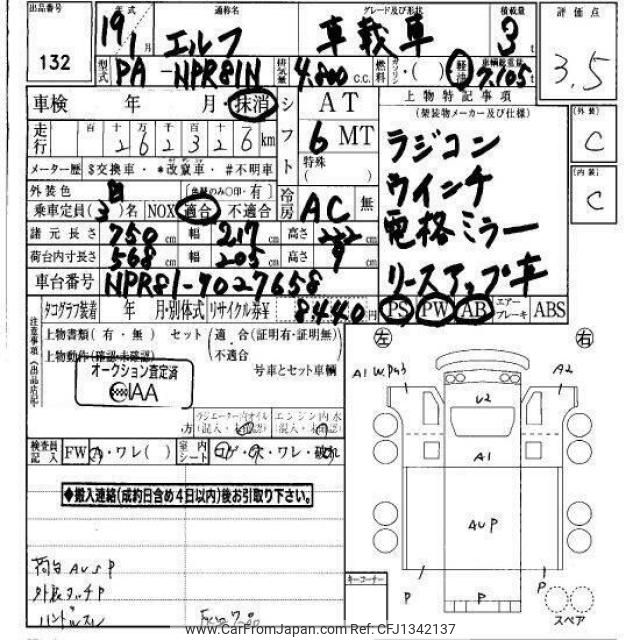 出品番号 年式 通称名 グレード及び形状 積載量 評価点
132 19年 1月 エルフ 車載車 3t 3.5
型式 PA-NPR81N 排気量 4.800 C.C. 燃料 ガソリン・( )軽油 車輌総重量 7.105t
車検 年 月・抹消 シフト AT 上物特記事項 (外装) C
走行 百 十 万 千 百 十 262326 km 6 MT (架装物メーカー及び仕様)
メーター歴 $交換車・*改竄車・#不明車 特殊( ) ラジコン (内装) C
外装色 白 (色替のみ○印・有) 冷房 AC 無 ウインチ
乗車定員(3)名 NOX 適合 不適合 電格ミラー
諸元長さ 750cm 幅 217cm 高さ 222cm リースアップ車
荷台内寸長さ 568cm 幅 205cm 高さ 9cm
車台番号 NPR81-7027658
タコグラフ装着 年 月・別体式 リサイクル券¥ 8440円 PS PW AB エアーブレーキ ABS
注意事項(出品店記入)
上物書類(有・無) セット(適合(証明有・証明無)・不適合)
上物動作(確認・未確認) 号車とセット車輌
オークション査定済
IAA
左 右
A1 W P43 A2
U2
A1
AUP
ラジエーター内オイル エンジン内水
方(混入・未確認)(混入・未確認)
検査員記入 FW A・ワレ( ) 室内シート コゲ・穴・ワレ・破れ
◆搬入連絡(成約日含め4日以内)後お引取り下さい。
荷台 AUSP
外装キズP
ハンドルスレ
キーコーナー
P P P
スペア
www.CarFromJapan.com Ref: CFJ1342137